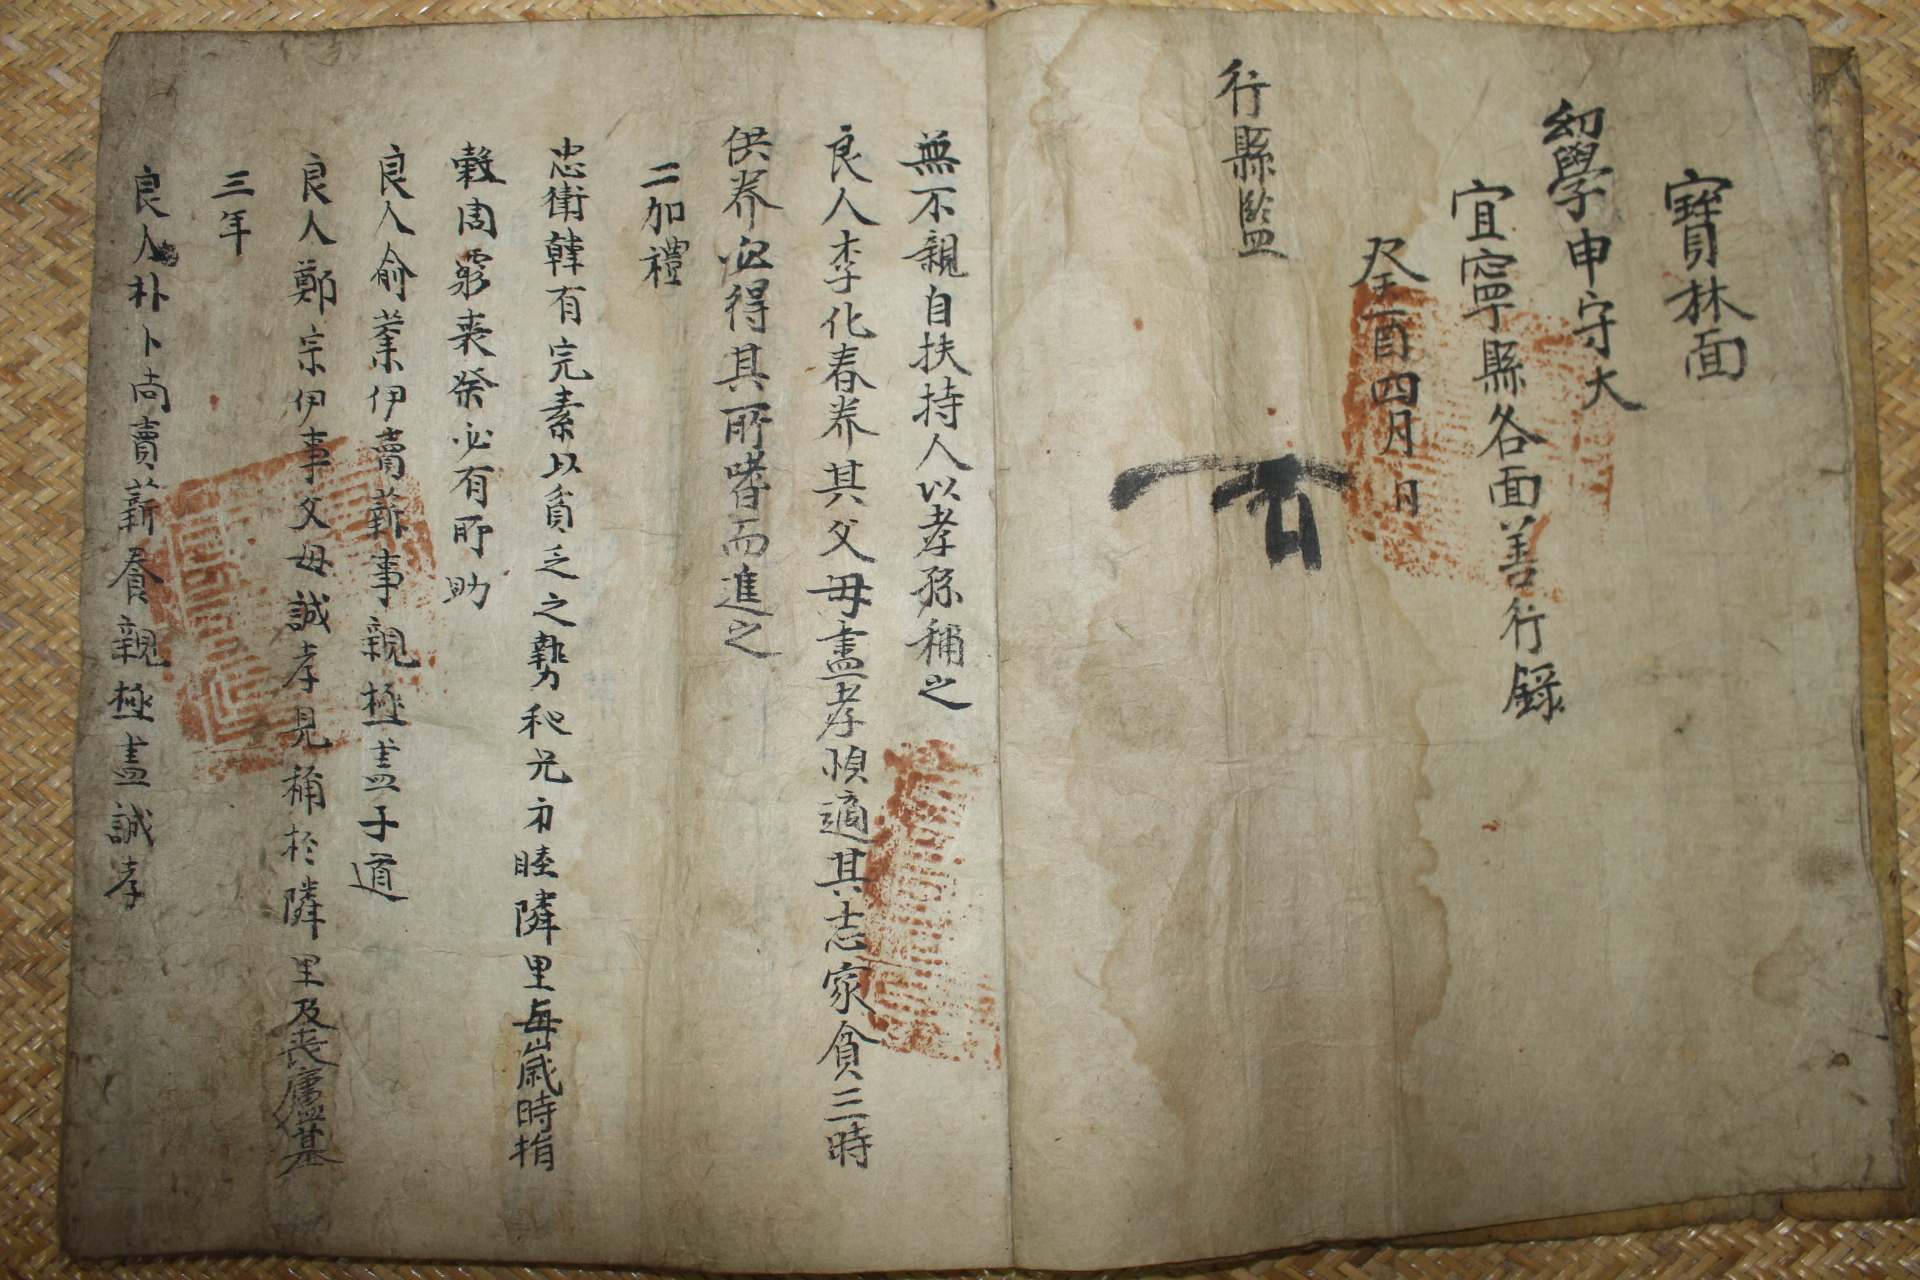 寶林面
幼學申守大
宜寧縣各面善行錄
癸酉四月 日
行縣監
無不親自扶持人以孝孫稱之
良人李化春养其父母盡孝順適其志家貧三時
供养必得其所嗜而進之
二加禮
忠衛韓有完素以貧乏之勢和光方睦隣里每歲時捐
穀周窮喪祭必有所助
良人俞業伊賣薪事親極盡子道
良人鄭宗伊事父母誠孝見稱於隣里及喪廬墓
三年
良人朴卜尚賣薪養親極盡誠孝